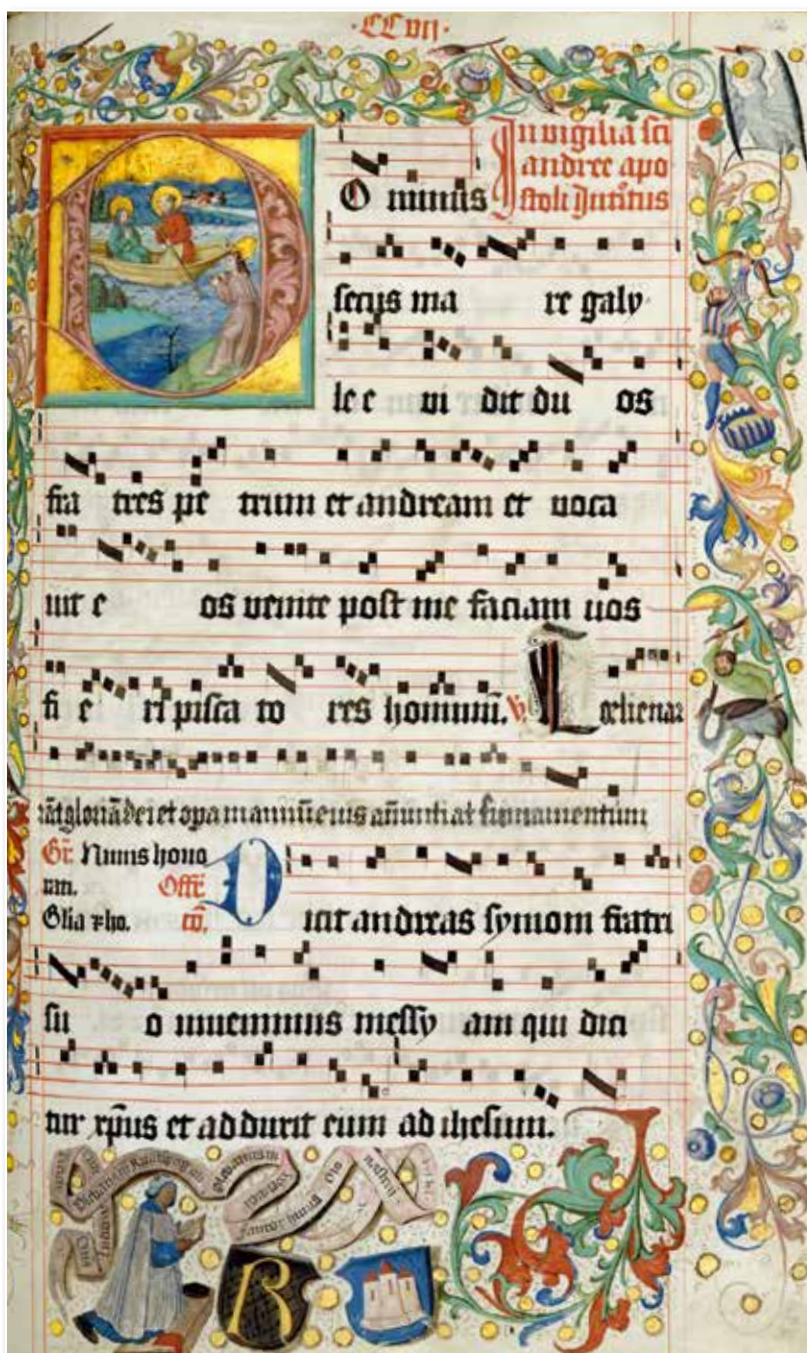 ·CCvij·
In vigilia sci
andree apo
stoli Introitus
Dominus
secus ma re galy
lee vi dit du os
fra tres pe trum et andream et voca
vit e os venite post me faciam vos
fi e ri pisca to res hominum̄. V. Celi enar
rāt gloriā dei et opa manuū eius añuntiat firmamentum
Gr. Nimis hono
rati. Offr̄
Glia ⁊ ho. cō.
Dicit andreas symoni fratri
su o invenimus messy am qui dici
tur xp̄us et adduxit eum ad ihesum.
R